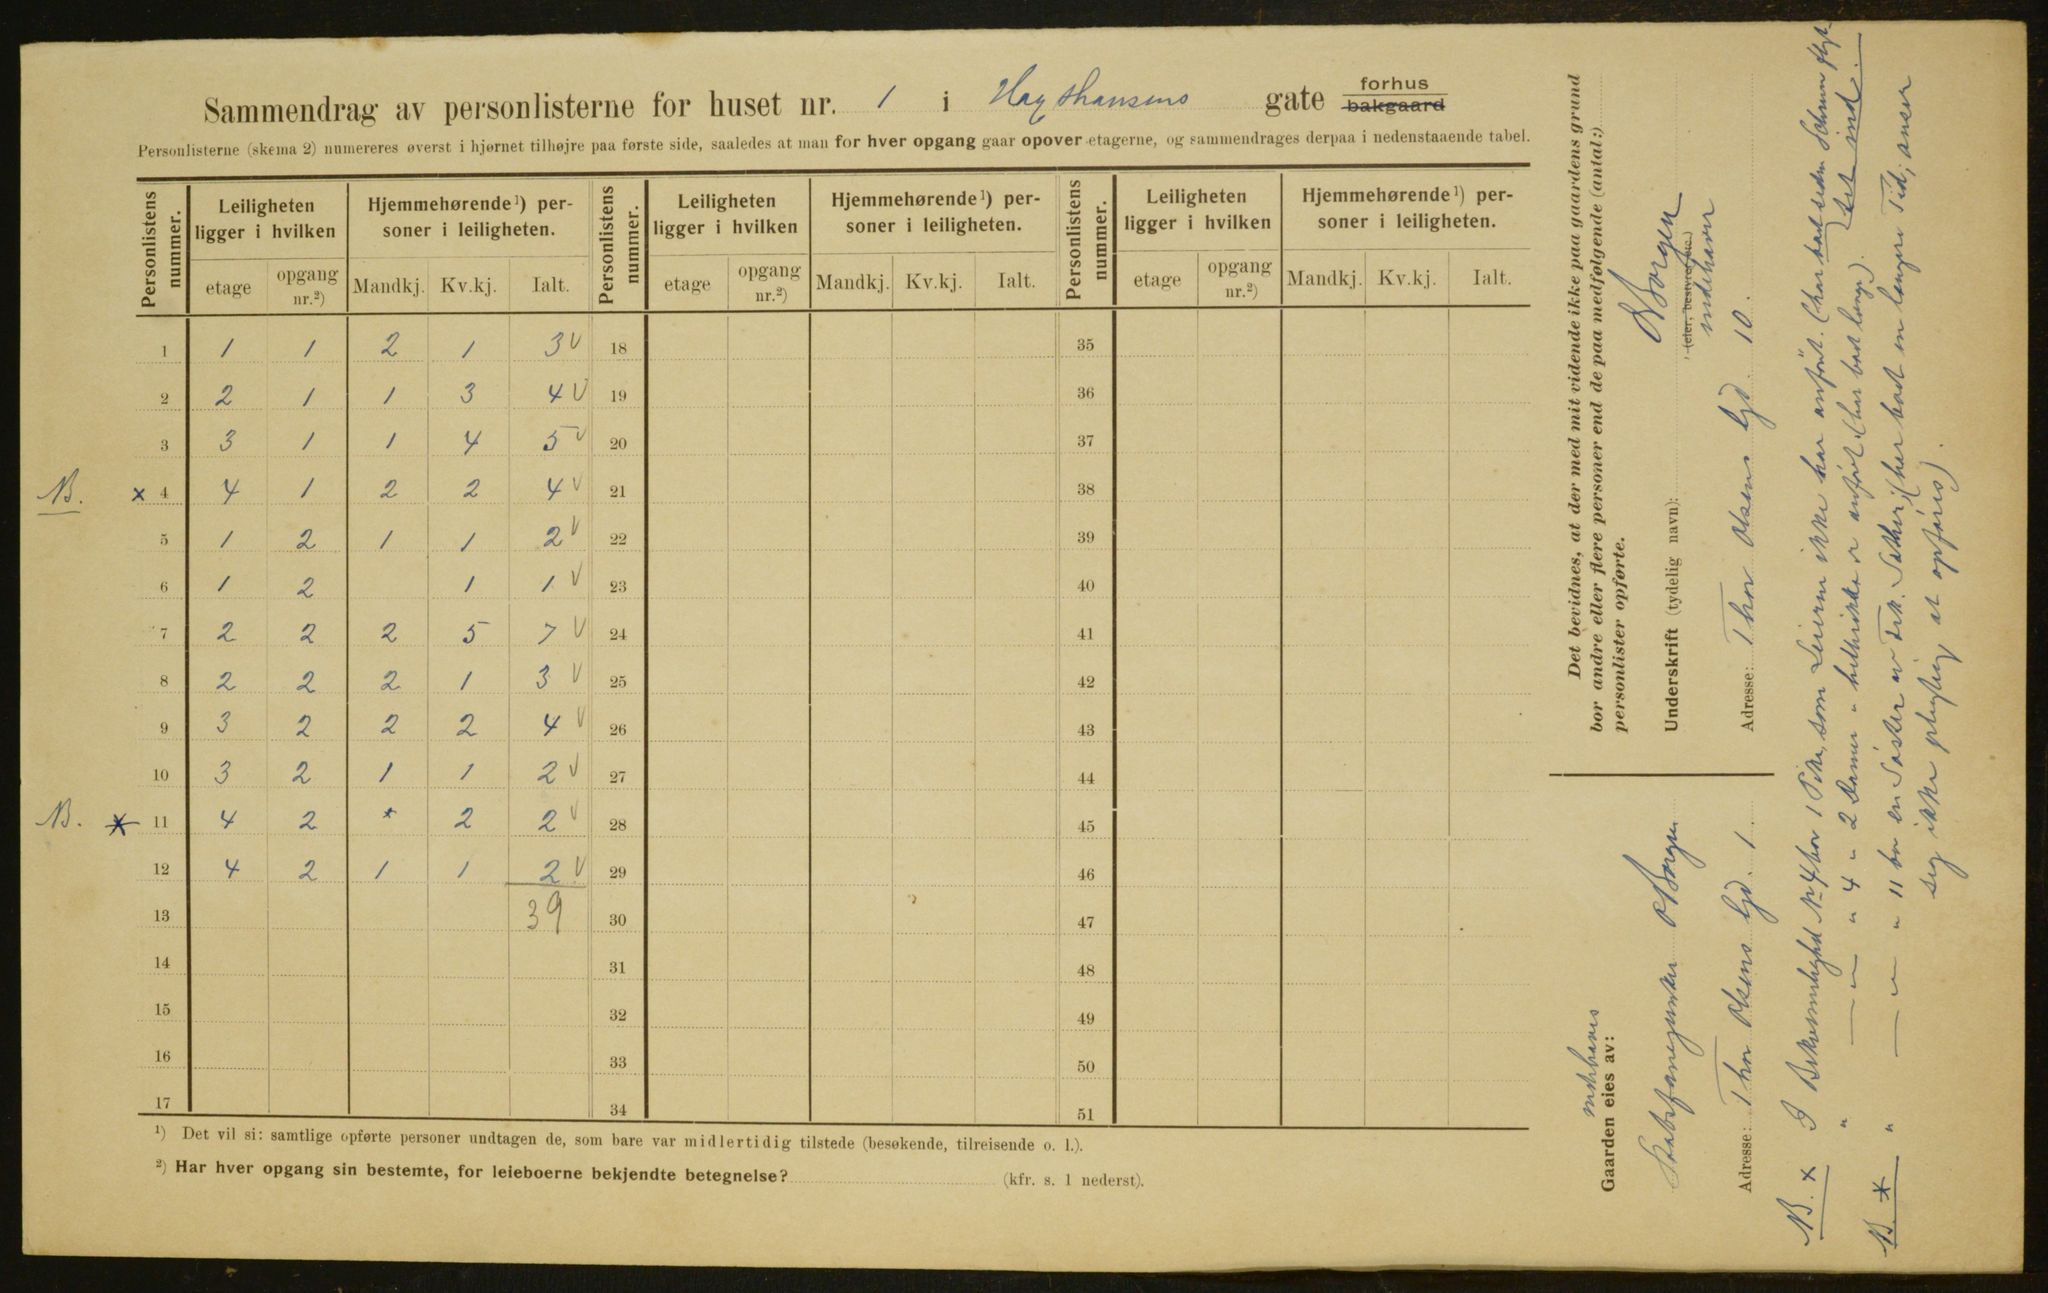 Sammendrag av personlisterne for huset nr. 1 i Hag Hansens gate forhus bakgaard
Personlisterne (skema 2) numereres øverst i hjørnet tilhøjre paa første side, saaledes at man for hver opgang gaar opover etagerne, og sammendrages derpaa i nedenstaaende tabel.
Personlistens nummer. Leiligheten ligger i hvilken Hjemmehørende ¹) personer i leiligheten. Personlistens nummer. Leiligheten ligger i hvilken Hjemmehørende ¹) personer i leiligheten. Personlistens nummer. Leiligheten ligger i hvilken Hjemmehørende ¹) personer i leiligheten.
etage opgang nr.²) Mandkj. Kv.kj. Ialt. etage opgang nr.²) Mandkj. Kv.kj. Ialt. etage opgang nr.²) Mandkj. Kv.kj. Ialt.
1 1 1 2 1 3 V 18 35
2 2 1 1 3 4 V 19 36
3 3 1 1 4 5 V 20 37
NB. x 4 4 1 2 2 4 V 21 38
5 1 2 1 1 2 V 22 39
6 1 2 1 1 V 23 40
7 2 2 2 5 7 V 24 41
8 2 2 2 1 3 V 25 42
9 3 2 2 2 4 V 26 43
10 3 2 1 1 2 V 27 44
NB. * 11 4 2 * 2 2 V 28 45
12 4 2 1 1 2 V 29 46
13 39 30 47
14 31 48
15 32 49
16 33 50
17 34 51
¹) Det vil si: samtlige opførte personer undtagen de, som bare var midlertidig tilstede (besøkende, tilreisende o. l.).
²) Har hver opgang sin bestemte, for leieboerne bekjendte betegnelse? (kfr. s. 1 nederst).
Det bevidnes, at der med mit vidende ikke paa gaardens grund
bor andre eller flere personer end de paa medfølgende (antal:)
personlister opførte.
Underskrift (tydelig navn): Borgen
(eier, bestyrer etc.)
indehaver
Adresse: Thor Olsens gd. 10.
Gaarden eies av:
Borgen
Adresse: Thor Olsens gd. 1
NB. x I Bekvemmelighed Nr 4 bor 1 Pike, som Leierne ikke har anført. (har bod siden
" — " — " 4 - 2 Damer - er anført (har bod længe).
NB. * " — " — " 11 bor en Søster av Frk. (har bodt en længere Tid, anser
sig ikke pligtig at opføres).